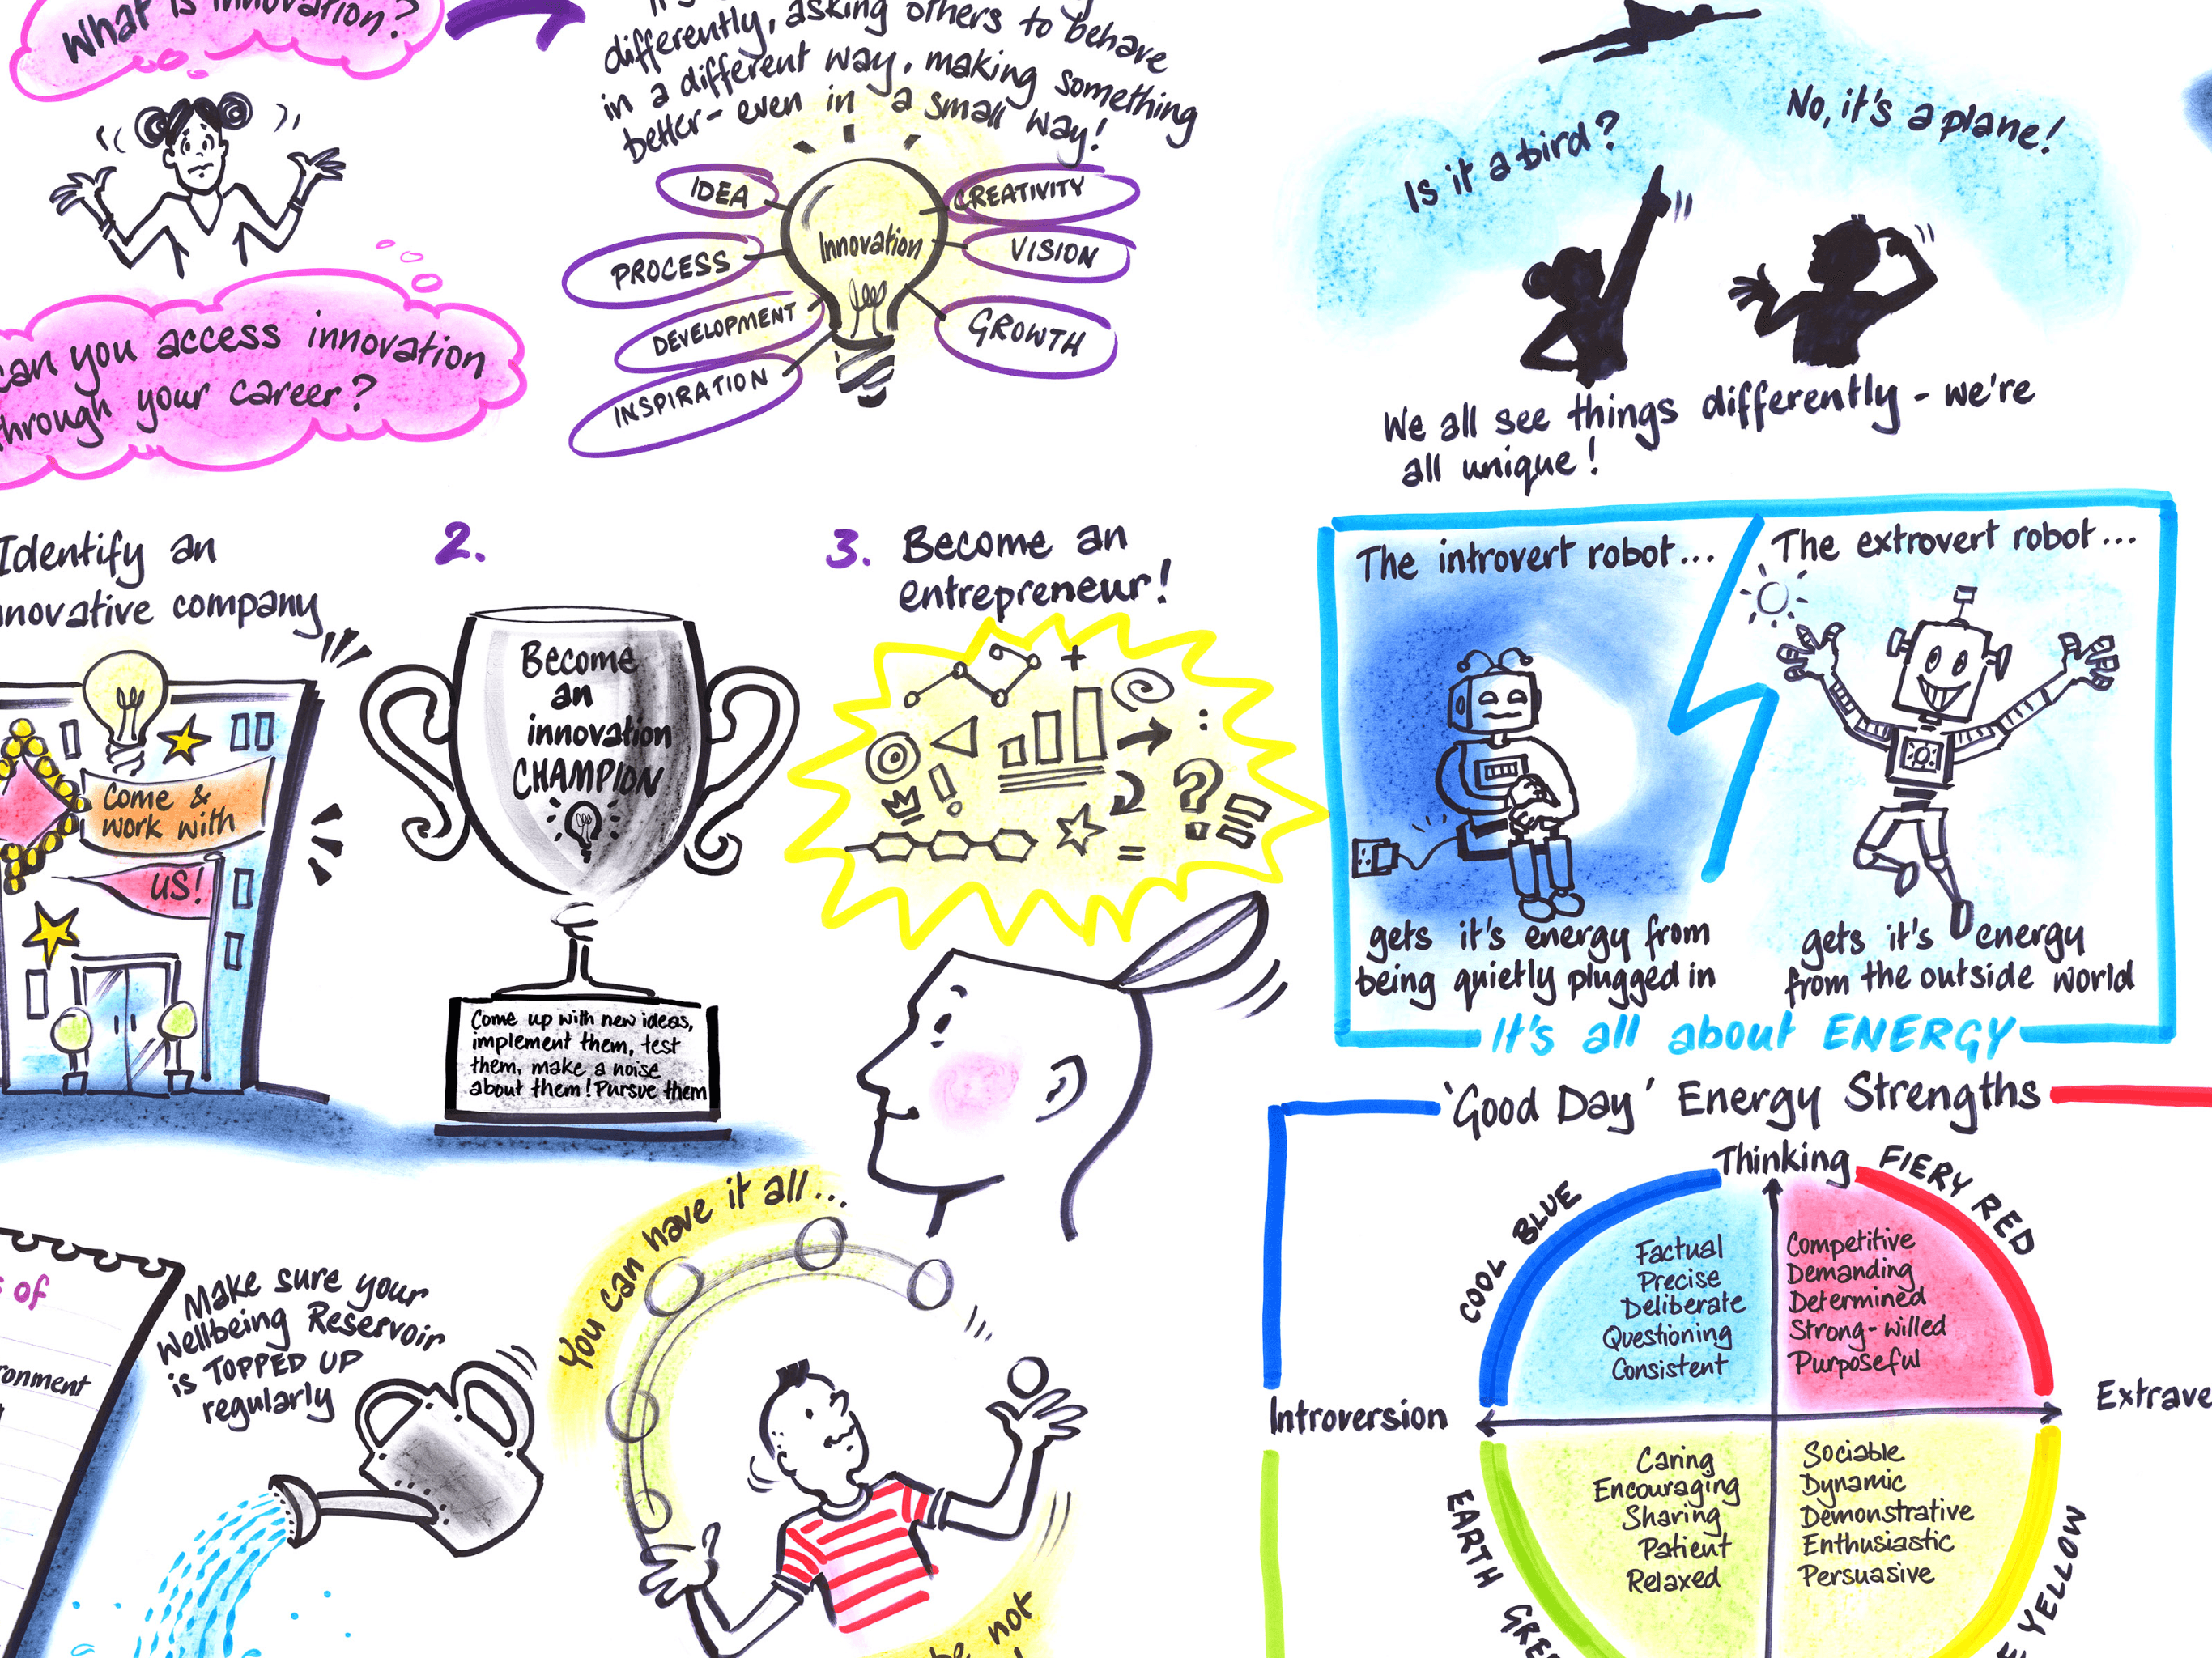 What is innovation?
differently, asking others to behave
in a different way, making something
better - even in a small way!
IDEA
PROCESS
DEVELOPMENT
INSPIRATION
Innovation
CREATIVITY
VISION
GROWTH
can you access innovation
through your career?
Is it a bird?
No, it's a plane!
We all see things differently - we're
all unique!
Identify an
innovative company
Come &
work with
us!
2.
Become
an
innovation
CHAMPION
Come up with new ideas,
implement them, test
them, make a noise
about them! Pursue them
3. Become an
entrepreneur!
+
:
!
?
=
The introvert robot...
gets it's energy from
being quietly plugged in
The extrovert robot...
gets it's energy
from the outside world
It's all about ENERGY
'Good Day' Energy Strengths
Thinking
COOL BLUE
FIERY RED
Factual
Precise
Deliberate
Questioning
Consistent
Competitive
Demanding
Determined
Strong-willed
Purposeful
Introversion
Caring
Encouraging
Sharing
Patient
Relaxed
Sociable
Dynamic
Demonstrative
Enthusiastic
Persuasive
EARTH
YELLOW
of
Make sure your
Wellbeing Reservoir
is TOPPED UP
regularly
You can have it all...
be not